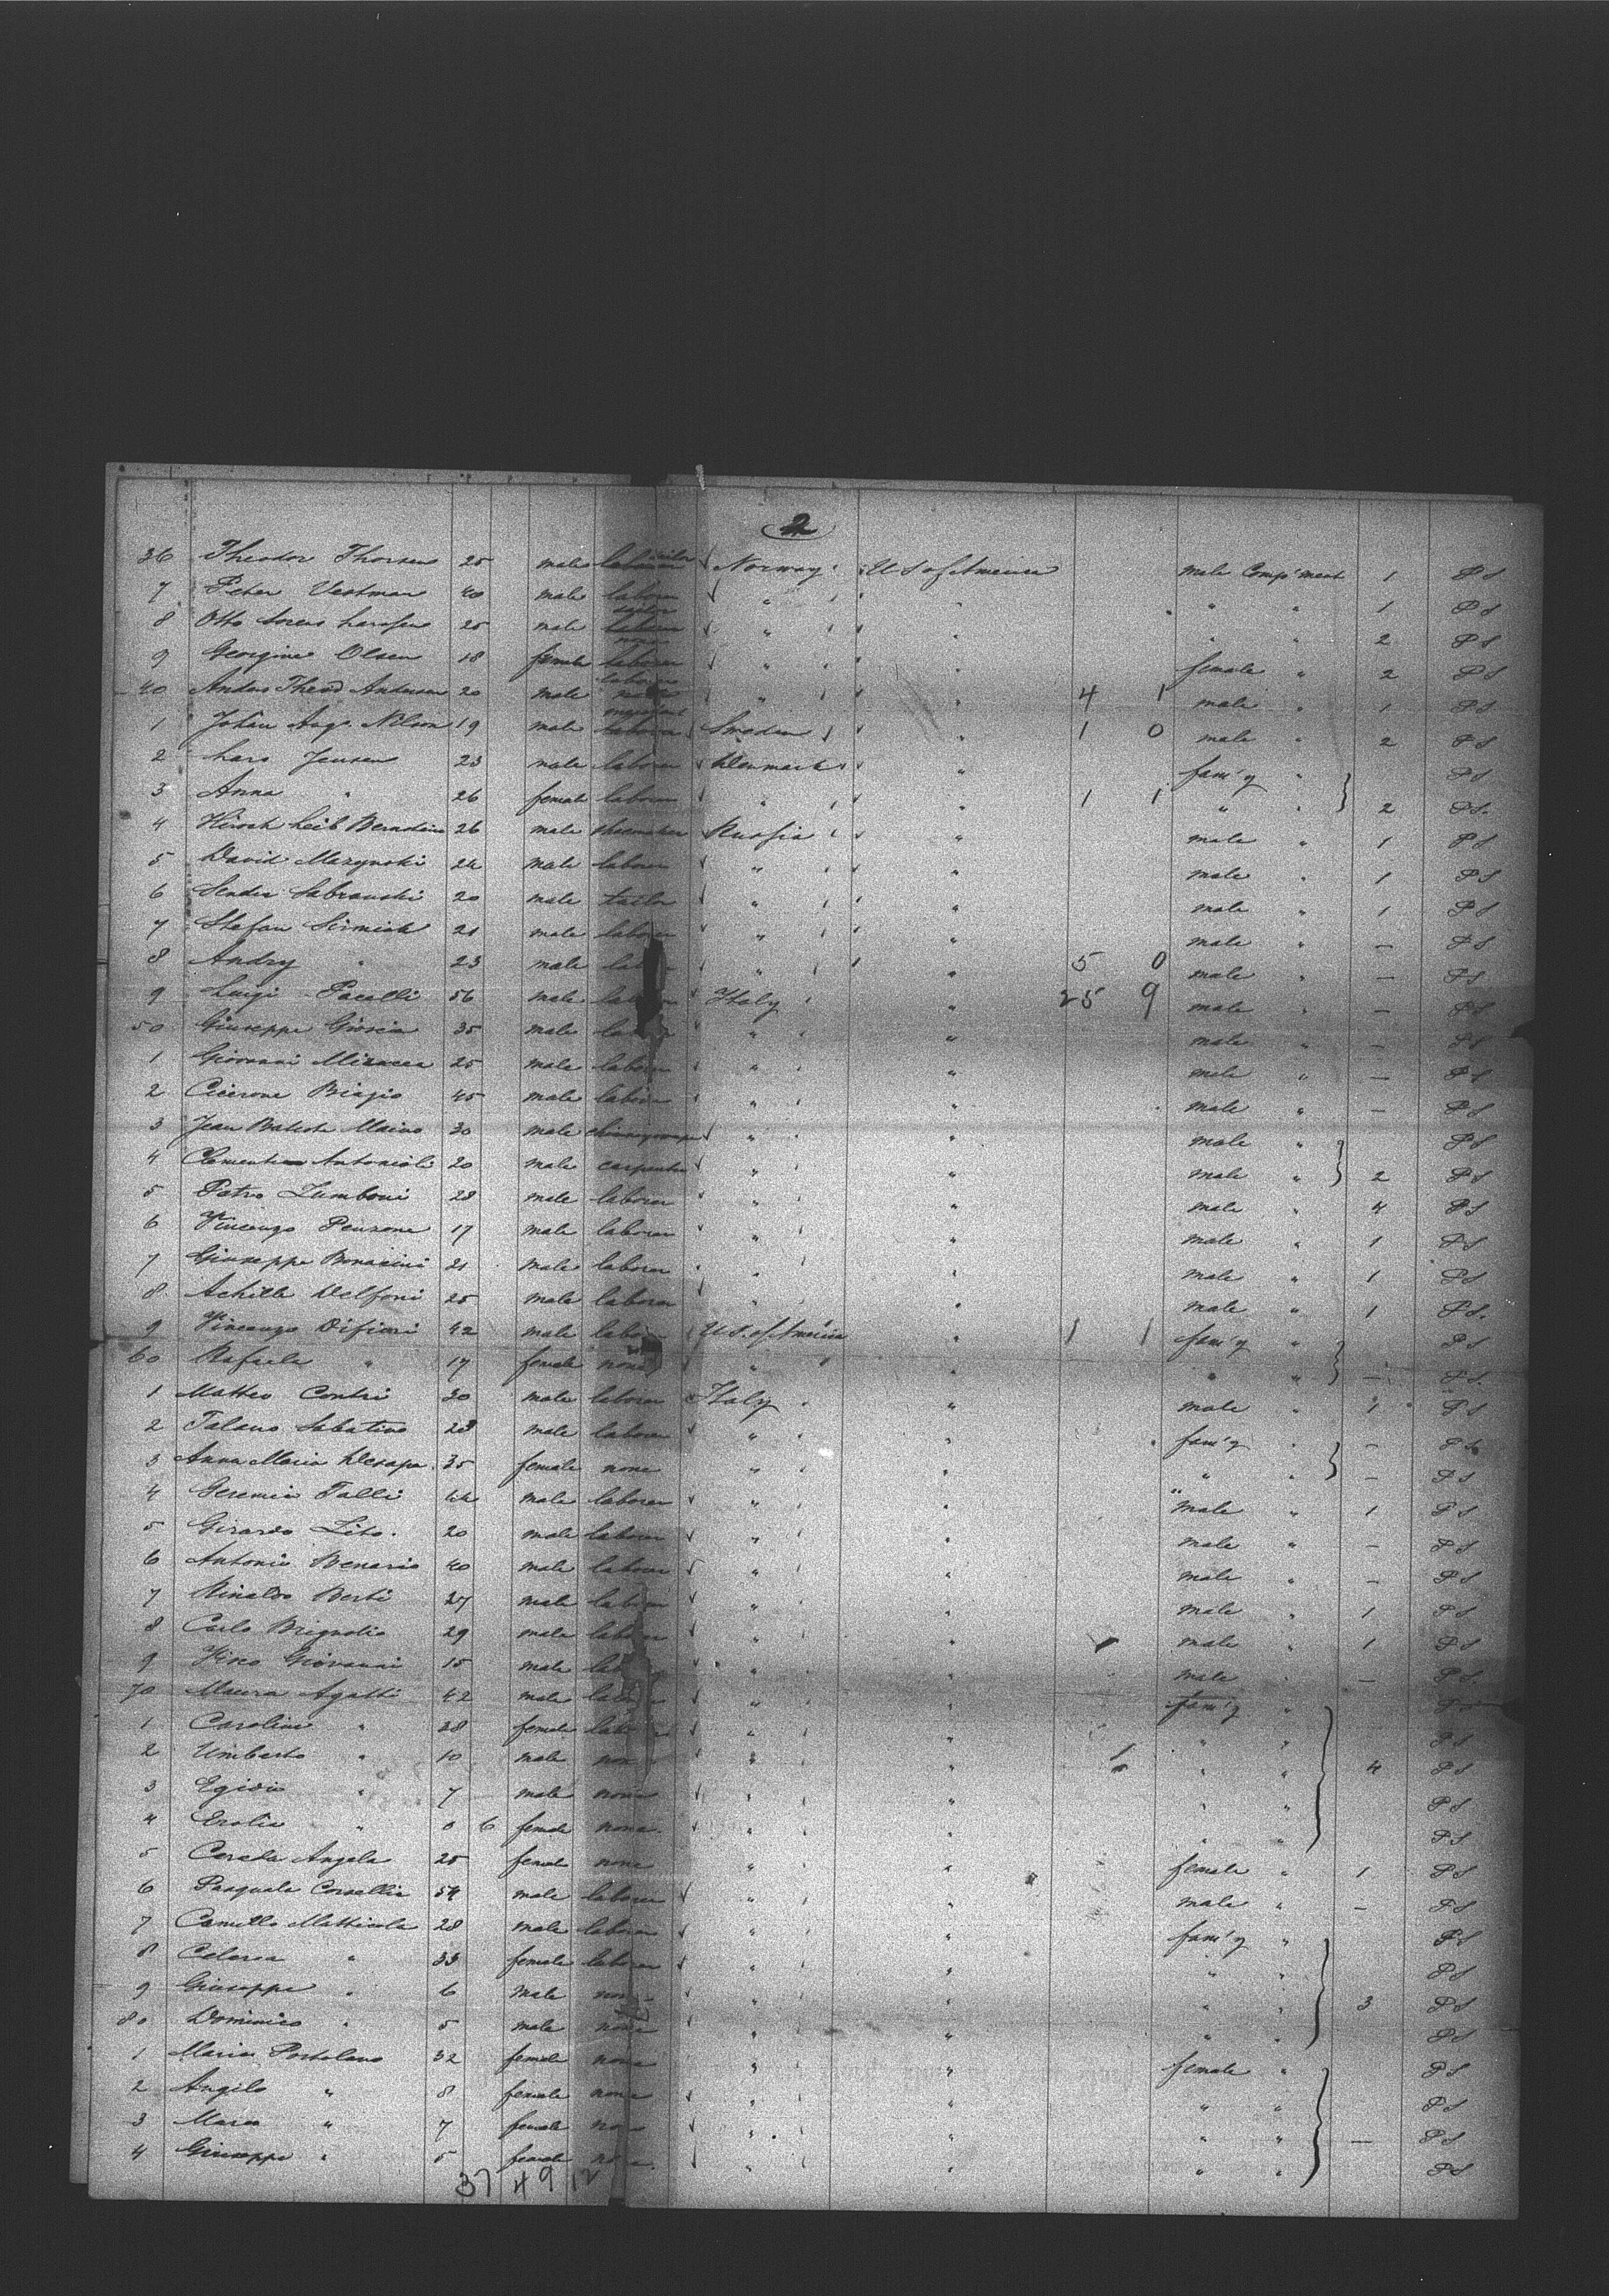 2
36 Theodor Thorsen 25 male sailor Norway U S of America male Comp'ment 1 P S
7 Peter Vestman 40 male laborer " " " " 1 P S
8 Otto 25 male sailor " " " " 2 P S
9 Georgine Olsen 18 female none " " female " 2 P S
40 Anders Theod Andersen 20 male laborer " " 4 1 male " 1 P S
1 Johan Aug. Nilson 19 male Sweden " 1 0 male " 2 P S
2 Lars Jensen 23 male laborer Denmark " fam'y " P S
3 Anna " 26 female laborer " " 1 1 " " 2 P S.
4 Hirsch Leib Bernstein 26 male shoemaker Russia " male " 1 P S
5 David 24 male laborer " " male " 1 P S
6 20 male tailor " " male " 1 P S
7 Stefan 21 male laborer " " male " — P S
8 Andry " 23 male " " 5 0 male " — P S
9 Luigi Pacelli 56 male Italy " 25 9 male " — P S
50 Giuseppe 35 male " " male " — P S
1 Giovanni 25 male laborer " " male " — P S
2 Cicerone Biagio 45 male laborer " " male " — P S
3 Jean Batiste Maino 30 male " " male " P S
4 Antonioli 20 male carpenter " " male " 2 P S
5 Petro Zumboni 28 male laborer " " male " 4 P S
6 Vincenzo Penzone 17 male laborer " " male " 1 P S
7 Giuseppe 21 male laborer " " male " 1 P S
8 Achille Delfoni 25 male laborer " " male " 1 P S.
9 Vincenzo Difiori 42 male laborer U.S. of America " 1 1 fam'y " P S
60 Rafaela " 17 female none " " " " — P S.
1 Matteo Contri 30 male laborer Italy " male " 1 P S
2 Talano Sabatino 28 male laborer " " fam'y " — P S
3 Anna Maria 35 female none " " " " — P S
4 Geremia Talli 44 male laborer " " male " 1 P S
5 Girardo Lito. 20 male laborer " " male " — P S
6 Antonio Benario 40 male laborer " " male " — P S
7 Rinaldo Berti 27 male laborer " " male " 1 P S
8 Carlo Brignolio 29 male laborer " " male " 1 P S
9 Giovanni 15 male " " male " — P S.
70 Maura Agatti 42 male " " fam'y " P S
1 Caroline " 28 female " " " " P S
2 Umberto " 10 male none " " 1 " " 4 P S
3 Egidio " 7 male none " " " " P S
4 Ersilia " 0 6 female none " " " " P S
5 Cereda Angela 25 female none " " female " 1 P S
6 Pasquale 54 male laborer " " male " — P S
7 Camillo 28 male laborer " " fam'y " P S
8 " 33 female laborer " " " " P S
9 Giuseppe " 6 male none " " " " 3 P S
80 Dominico " 5 male none " " " " P S
1 Maria Portolano 32 female none " " female " P S
2 Angilo " 8 female none " " " " P S
3 " 7 female " " " " — P S
4 Giuseppe " 5 female " " " " P S
37 49 12